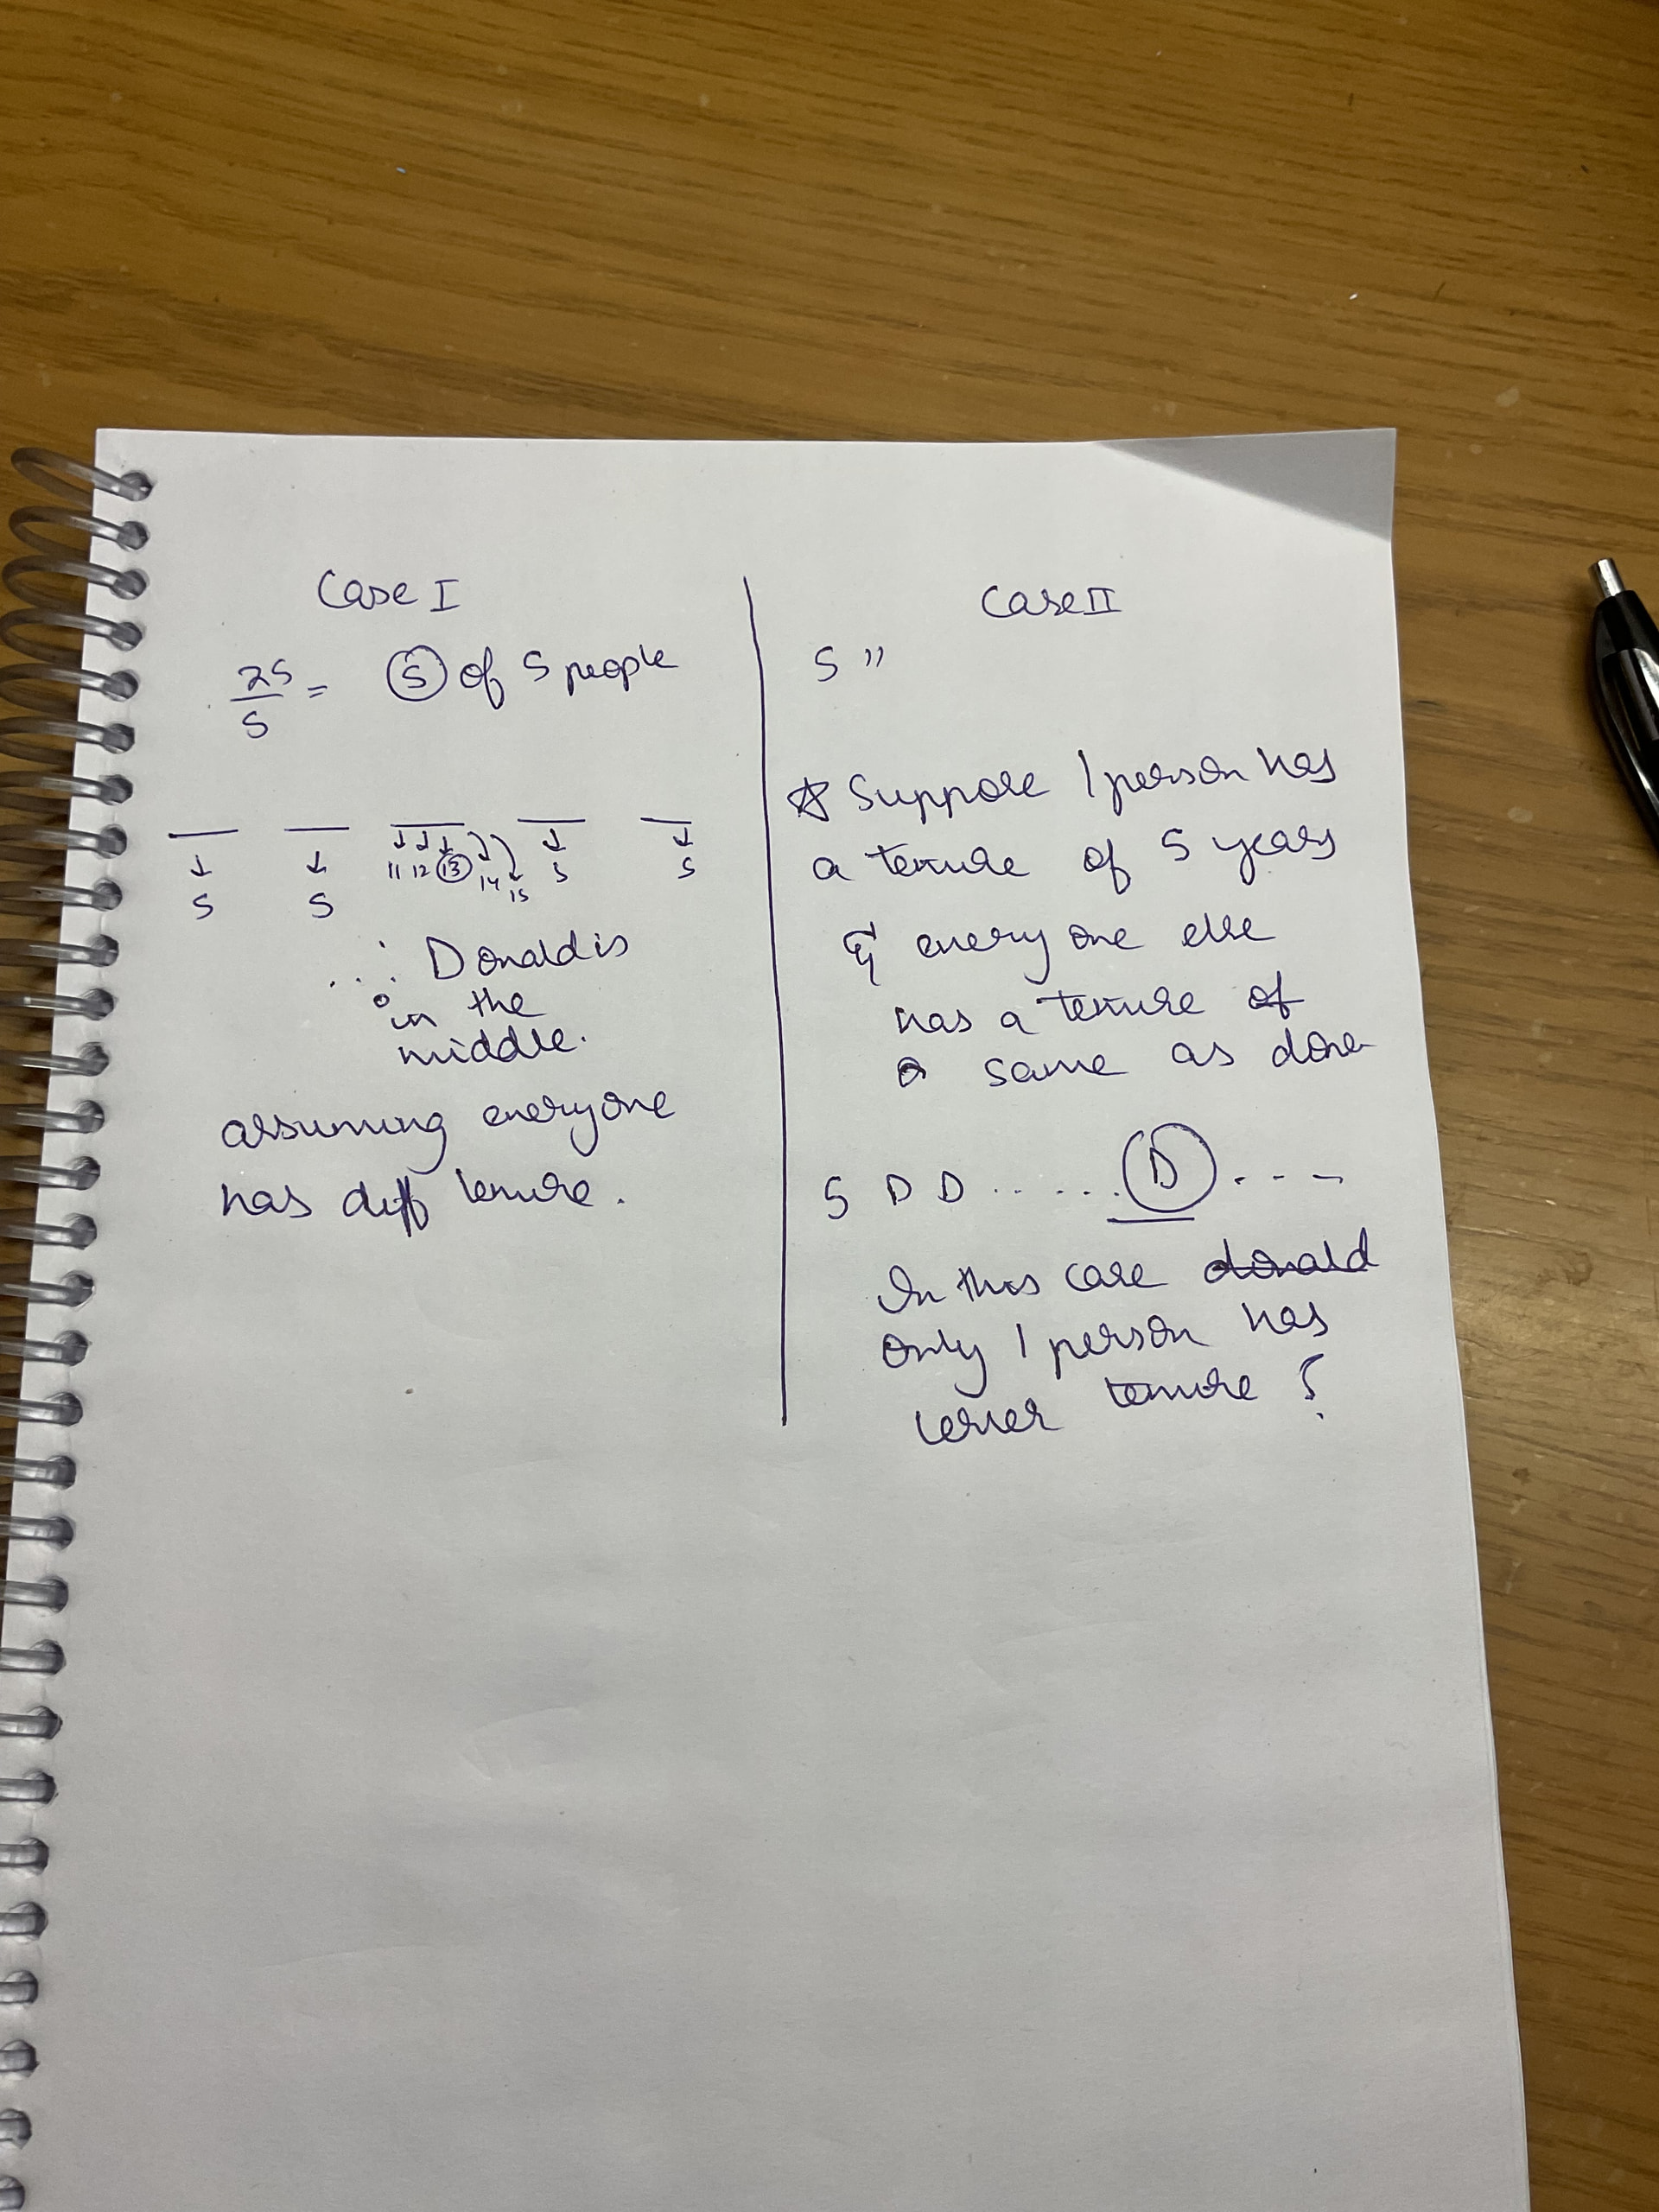 Case I
25/5 = 5 of 5 people
5 5 11 12 13 14 15 5 5
∴ Donald is
in the
middle.
assuming everyone
has diff tenure.
Case II
5 "
☆ Suppose 1 person has
a tenure of 5 years
& everyone else
has a tenure of
same as done
5 D D ...... D . - - -
In this case donald
only 1 person has
lesser tenure ?